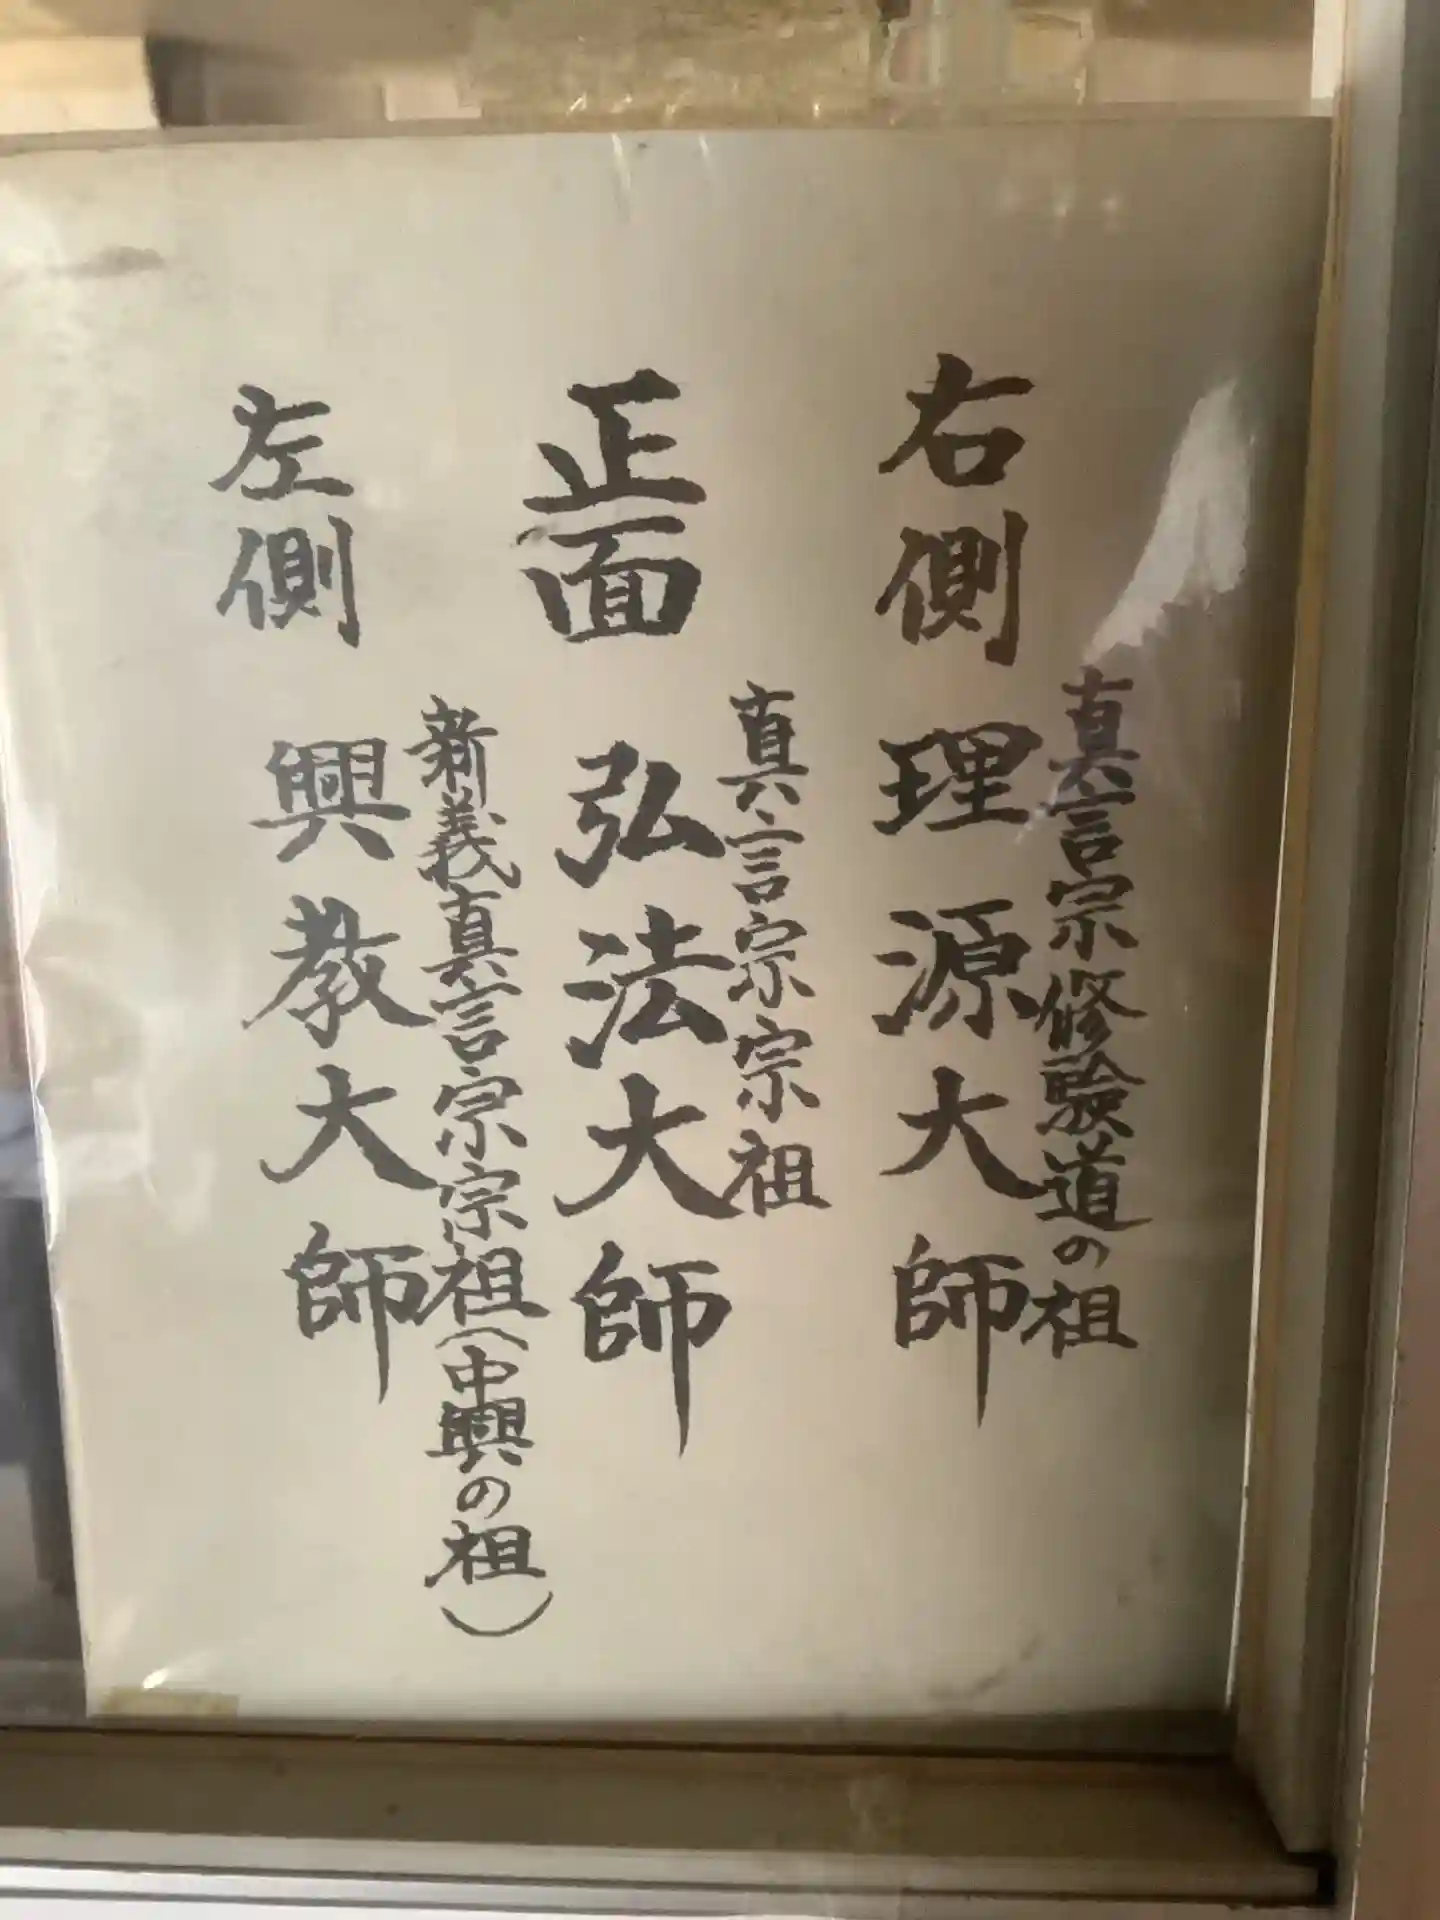 右側 真言宗修験道の祖
理源大師
正面 真言宗宗祖
弘法大師
左側 新義真言宗宗祖(中興の祖)
興教大師